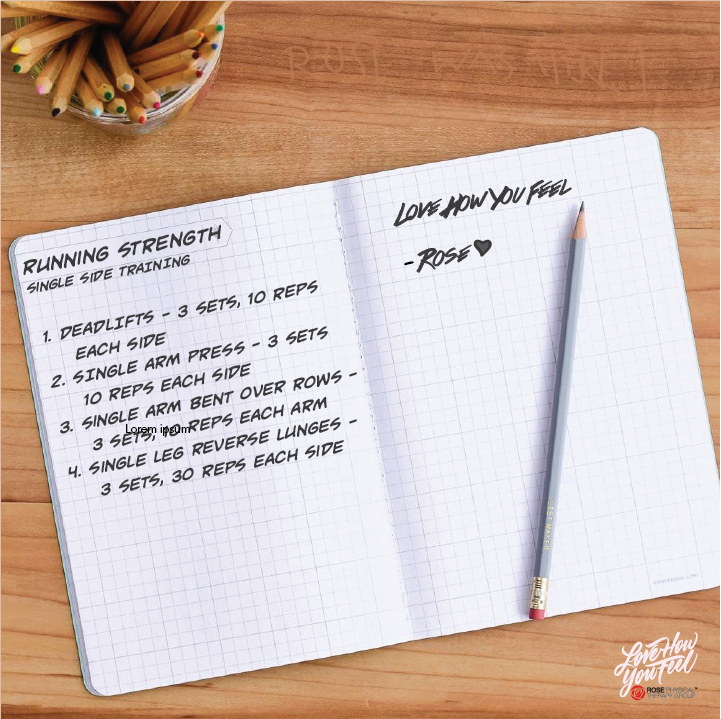 RUNNING STRENGTH
SINGLE SIDE TRAINING
1. DEADLIFTS - 3 SETS, 10 REPS
EACH SIDE
2. SINGLE ARM PRESS - 3 SETS
10 REPS EACH SIDE
3. SINGLE ARM BENT OVER ROWS -
3 SETS, REPS EACH ARM
Lorem ipsum
4. SINGLE LEG REVERSE LUNGES -
3 SETS, 30 REPS EACH SIDE
LOVE HOW YOU FEEL
- ROSE
Love How
You Feel
ROSE PHYSICAL
THERAPY GROUP